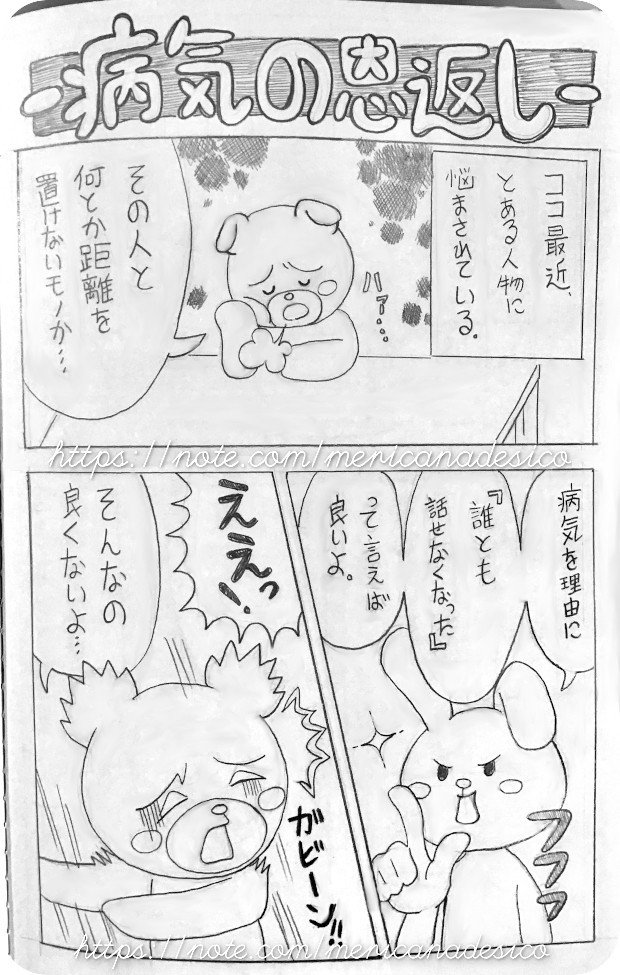 -病気の恩返し-
ココ最近、
とある人物に
悩まされている。
ハァ…
その人と
何とか距離を
置けないモノか…
https://note.com/mericanadesico
病気を理由に
『誰とも
話せなくなった』
って言えば
良いよ。
フフフ
ええっ!
そんなの
良くないよ…
ガビーン!!
https://note.com/mericanadesico